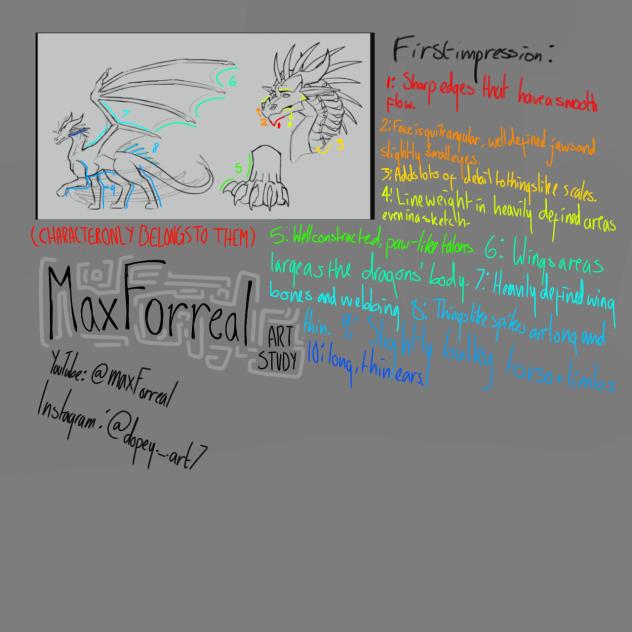 First impression:
1: Sharp edges that have a smooth
flow.
2: Face is quite angular, well defined jaws and
slightly small eyes.
3: Adds lots of detail to things like scales.
4: Line weight in heavily defined areas
even in a sketch.
5: Well constructed, paw-like talons
6: Wings areas
large as the dragons' body.
7: Heavily defined wing
bones and webbing
8: Things like spikes are long and
thin.
9: Slightly bulky torso + limbs
10: long, thin ears.
(CHARACTER ONLY BELONGS TO THEM)
MaxForreal
ART
STUDY
YouTube: @maxForreal
Instagram: @dopey._.art7
6
7
8
9
5
2
1
4
3